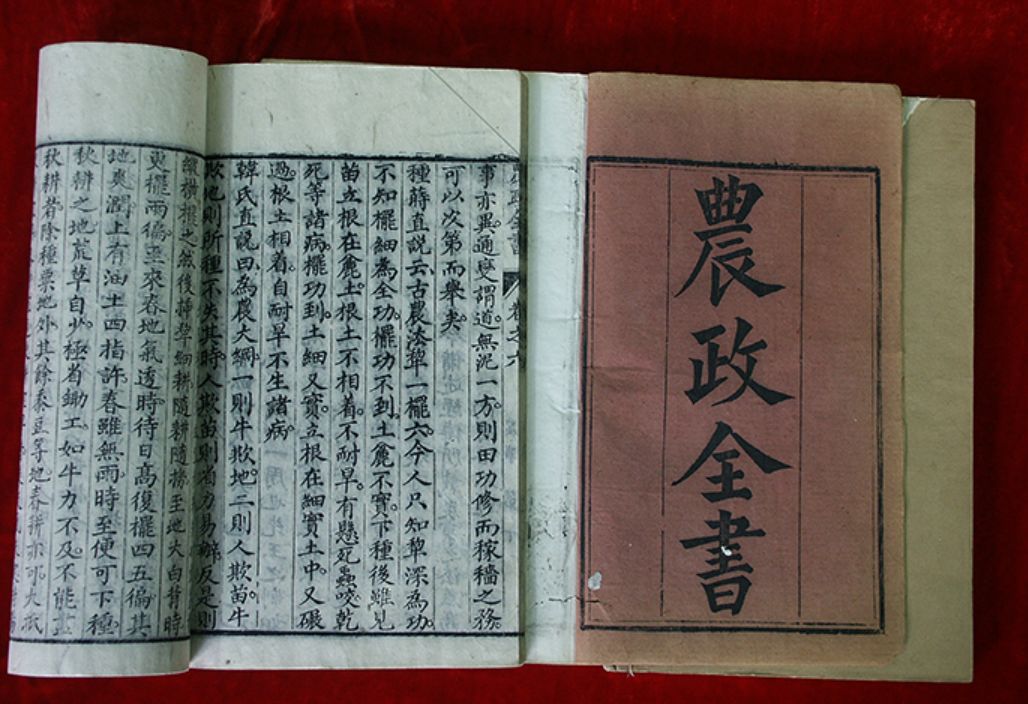 農政全書
農政全書
卷之六
事亦異。通變謂道無泥一方。則田功修而稼穡之務。
可以次第而舉矣。
種蒔直說云古農法犂一擺六。今人只知犂深為功。
不知擺細為全功。擺功不到。土麄不實。下種後雖見
苗立根在麄土。根土不相着。不耐旱。有懸死蟲咬乾
死等諸病。擺功到。土細又實。立根在細實土中。又碾
過。根土相着。自耐旱不生諸病。
韓氏直說曰為農大綱一則牛欺地。二則人欺苗。牛
欺地則所種不失其時。人欺苗則省力易辦。反是則
縱橫擺之。然後插犂細耕。隨耕隨撈。至地大白背時
更擺兩徧。至來春地氣透。時待日高復擺四五徧。其
地爽潤。上有油土四指許。春雖無雨。時至便可下種。
秋耕之地。荒草自少。極省鋤工。如牛力不及。不能
秋耕者。除種粟地外。其餘黍豆等地。春耕亦可。大抵